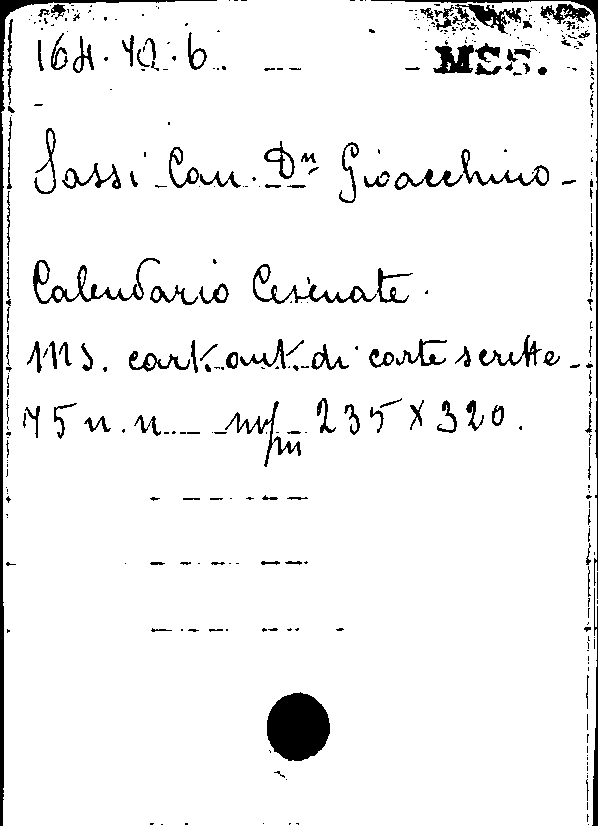 164.70.6. MSS.
Sassi Can. Dn Gioacchino-
Calendario Cesenate.
Ms. cart. aut. di carte scritte
75 n. n. m/m 235 X 320.